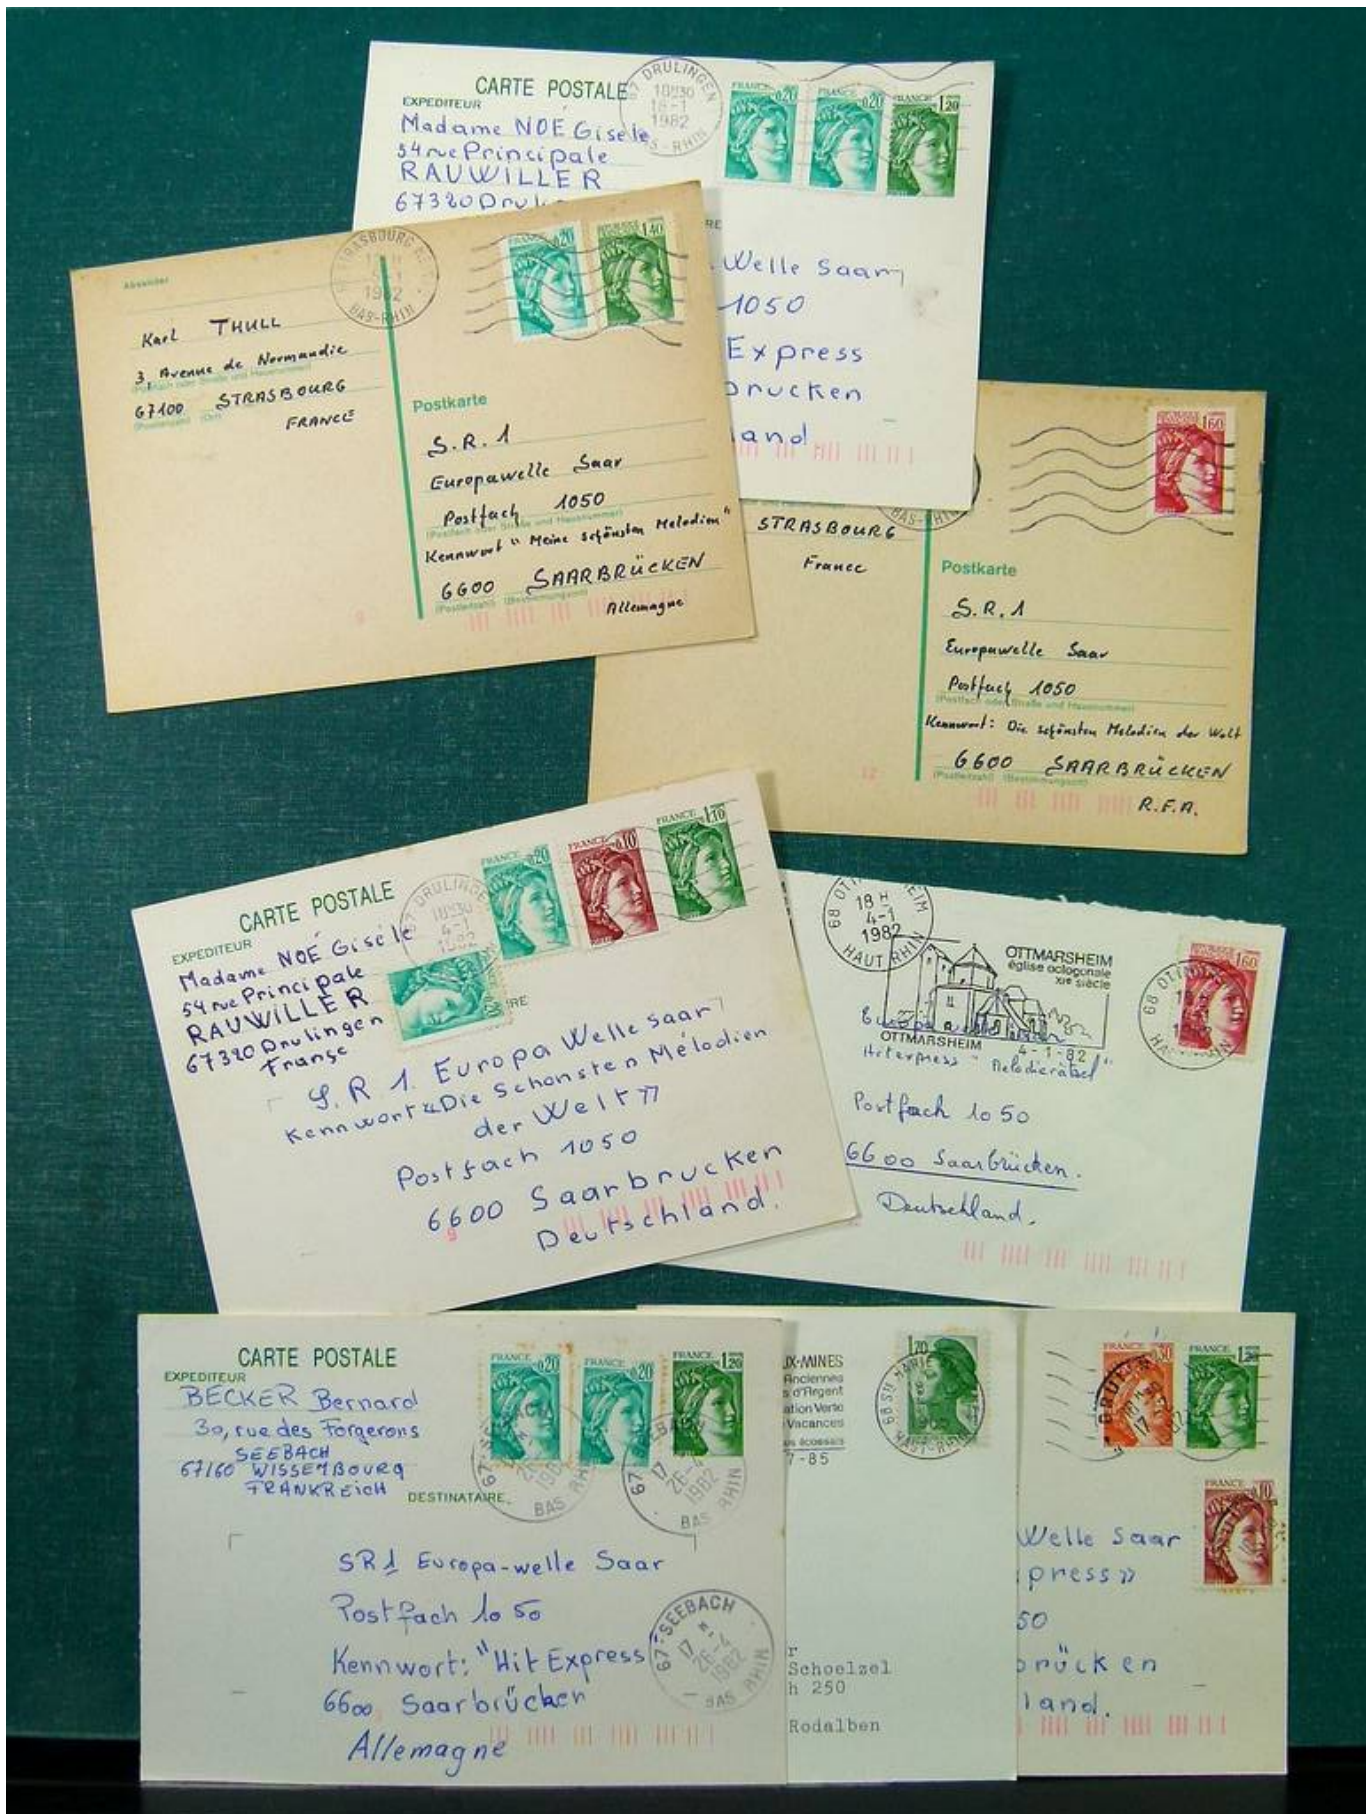 CARTE POSTALE
EXPEDITEUR
Madame NOÉ Gisele
54 rue Principale
RAUWILLER
67320
67 DRULINGEN
18H30
18-1
1982
BAS-RHIN
FRANCE 0,20
FRANCE 0,20
FRANCE 1,20
Welle Saar
1050
Express
brucken
land
Absender
Karl THULL
3, Avenue de Normandie
67100 STRASBOURG
(Postleitzahl) (Ort)
FRANCE
STRASBOURG
1982
BAS-RHIN
FRANCE 0,20
1,40
Postkarte
S.R.1
Europawelle Saar
Postfach 1050
(Postfach oder Straße und Hausnummer)
Kennwort "Meine schönsten Melodien"
6600 SAARBRÜCKEN
(Postleitzahl) (Bestimmungsort)
Allemagne
1,60
BAS-RHIN
STRASBOURG
France
Postkarte
S.R.1
Europawelle Saar
Postfach 1050
(Postfach oder Straße und Hausnummer)
Kennwort: Die schönsten Melodien der Welt
6600 SAARBRÜCKEN
(Postleitzahl) (Bestimmungsort)
R.F.A.
CARTE POSTALE
EXPEDITEUR
Madame NOÉ Gisele
54 rue Principale
RAUWILLER
67320 Drulingen
Franse
DRULINGEN
18H30
4-1
1982
FRANCE 0,20
FRANCE 0,10
FRANCE 1,10
S.R 1. Europa Welle saar
Kennwort «Die Schonsten Mélodien
der Welt»
Postfach 1050
6600 Saarbrucken
Deutschland.
68 OTTMARSHEIM
18 H
4-1
1982
HAUT RHIN
OTTMARSHEIM
église octogonale
XIe siècle
OTTMARSHEIM 4-1-82
1,60
Hitexpress "Melodierätsel"
Postfach 1050
6600 Saarbrücken.
Deutschland.
CARTE POSTALE
EXPEDITEUR
BECKER Bernard
30, rue des Forgerons
SEEBACH
67160 WISSEMBOURG
FRANKREICH
DESTINATAIRE
FRANCE 0,20
FRANCE 0,20
FRANCE 1,20
67 SEEBACH
17 H
26-4
1982
BAS RHIN
SR1 Europa-welle Saar
Postfach 1050
Kennwort: "Hit Express
6600 Saarbrücken
Allemagne
67-SEEBACH
17 H
26-4
1982
BAS RHIN
UX-MINES
Anciennes
s d'Argent
ation Verte
Vacances
us écossais
7-85
1,70
68 STE MARIE
HAUT-RHIN
r
Schoelzel
h 250
Rodalben
0,30
FRANCE 1,20
0,10
Welle Saar
press»
50
brücken
land.